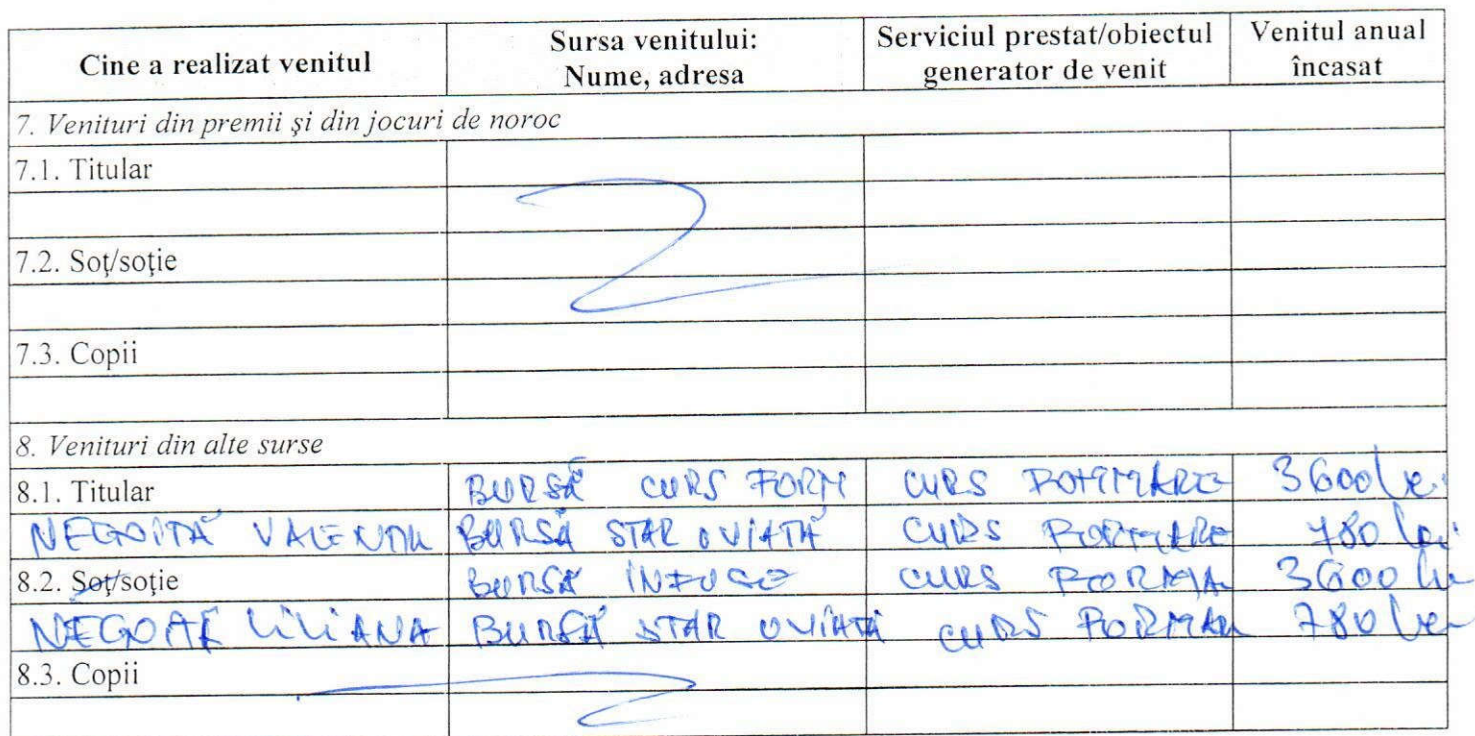 Cine a realizat venitul Sursa venitului: Nume, adresa Serviciul prestat/obiectul generator de venit Venitul anual încasat
7. Venituri din premii şi din jocuri de noroc
7.1. Titular
7.2. Soţ/soţie
7.3. Copii
8. Venituri din alte surse
8.1. Titular BURSĂ CURS FORM CURS FORMARE 3600 lei
NEGOITĂ VALENTIN BURSĂ STAR OVIATĂ CURS FORMARE 780 lei
8.2. Soţ/soţie BURSĂ CURS FORMA 3600 lei
LILIANA BURSĂ STAR OVIATĂ CURS FORMAR 780 lei
8.3. Copii